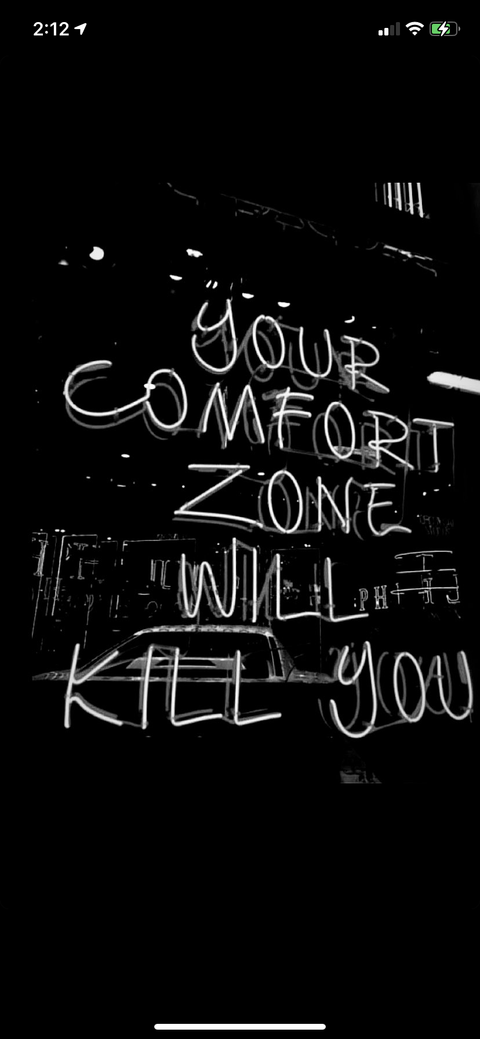 2:12
YOUR
COMFORT
ZONE
WILL
KILL YOU